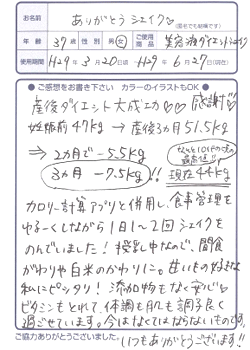 お名前 ありがとう シェイク♡
(匿名でも結構です)
年齢 37歳 性別 男・女 ご使用商品 美容液ダイエットシェイク
使用期間 H29年3月20日頃〜H29年6月27日(現在)
●ご感想をお書き下さい カラーのイラストもOK●
産後ダイエット大成功♡♡感謝♡
妊娠前47kg → 産後3ヵ月51.5kg
⇒ 2ヵ月で −5.5kg
3ヵ月 −7.5kg!!
現在44kg
カロリー計算アプリと併用し、食事管理を
ゆる〜くしながら1日1〜2回シェイクを
のんでいました!授乳中なので、間食
がわりや白米のかわりに。甘いもの好きな
私にピッタリ!添加物もなく安心♡
ビタミンもとれて、体調も肌も調子良く
過ごせています。今はなくてはならないものです。
いつもありがとうございます!!
ご協力ありがとうございました。